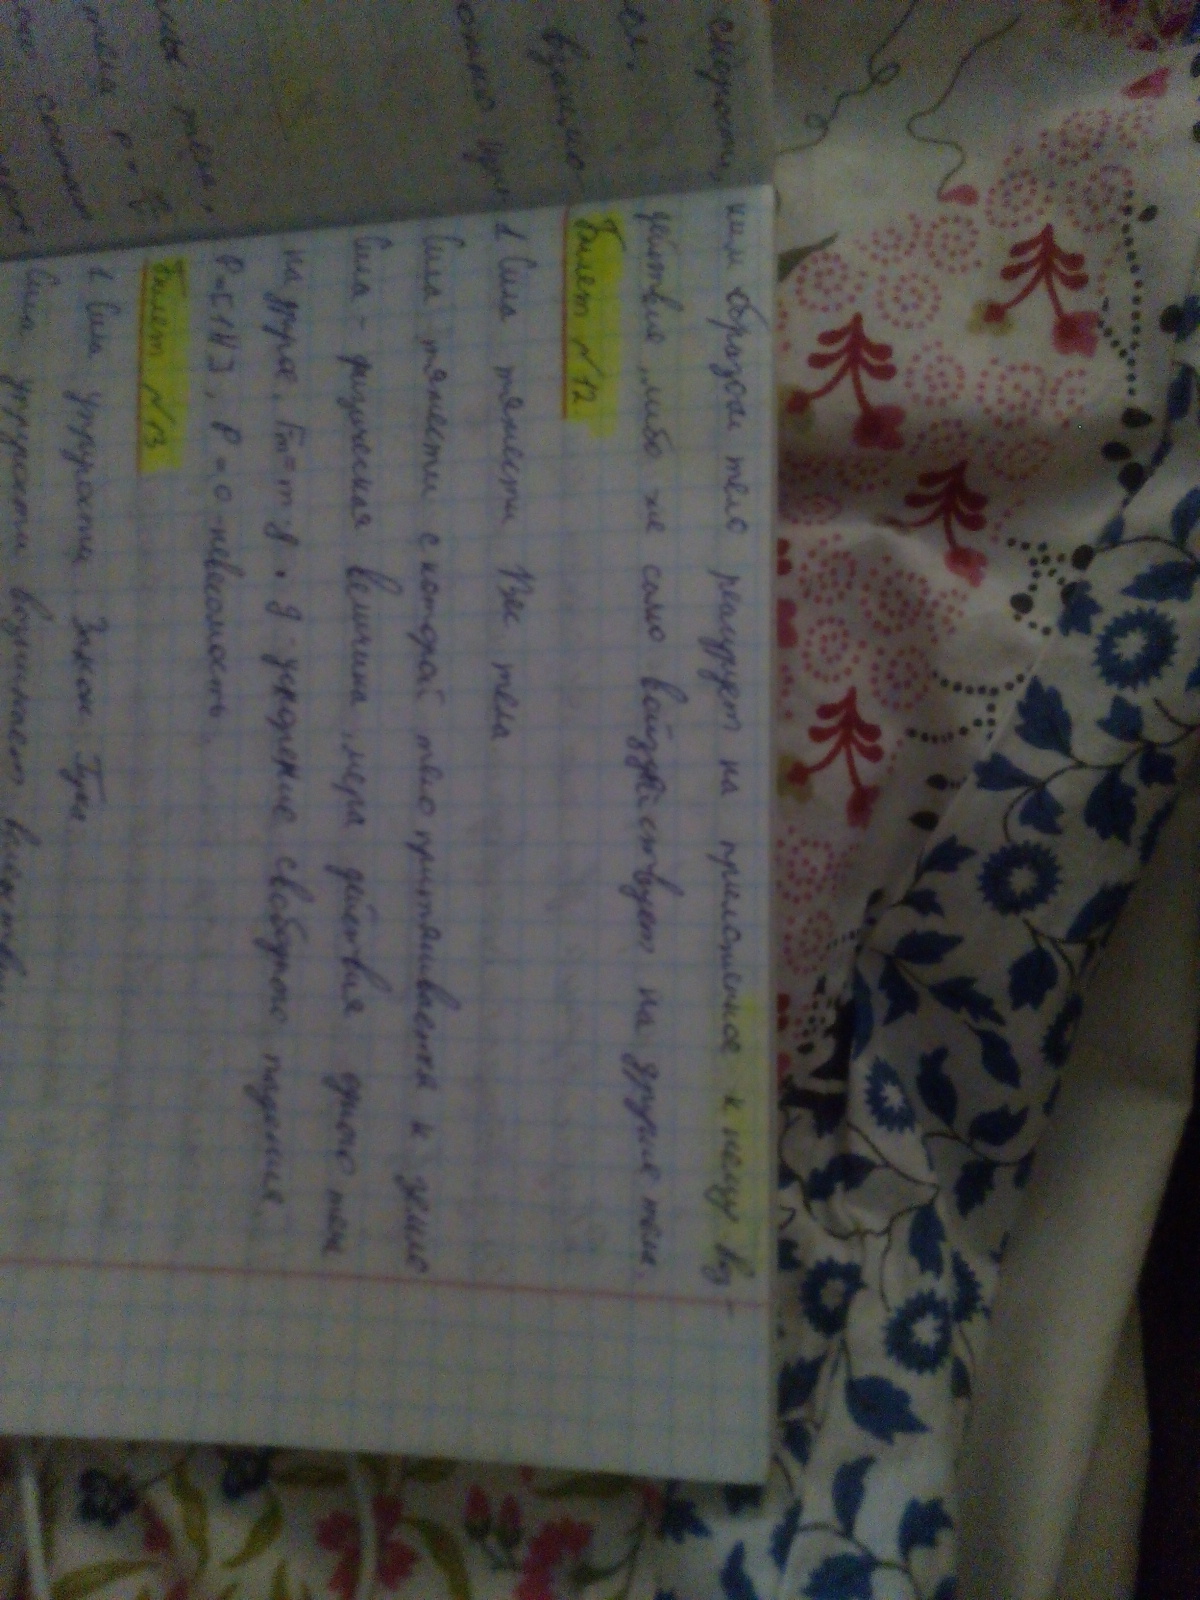 скорости,
ся.
взаимо-
ким образом тело реагирует на приложенное к нему воз-
действие, либо же само воздействует на другие тела.
Билет №12.
1 Сила тяжести Вес тела
Сила тяжести с которой тело притягивается к земле
Сила - физическая величина, мера действия одного тела
на другое. Fт=m·g. g ускорение свободного падения.
P=[1H], P=0 невесомость.
Билет №13
1 Сила упругости Закон Гука.
Сила упругости возникает вследствии